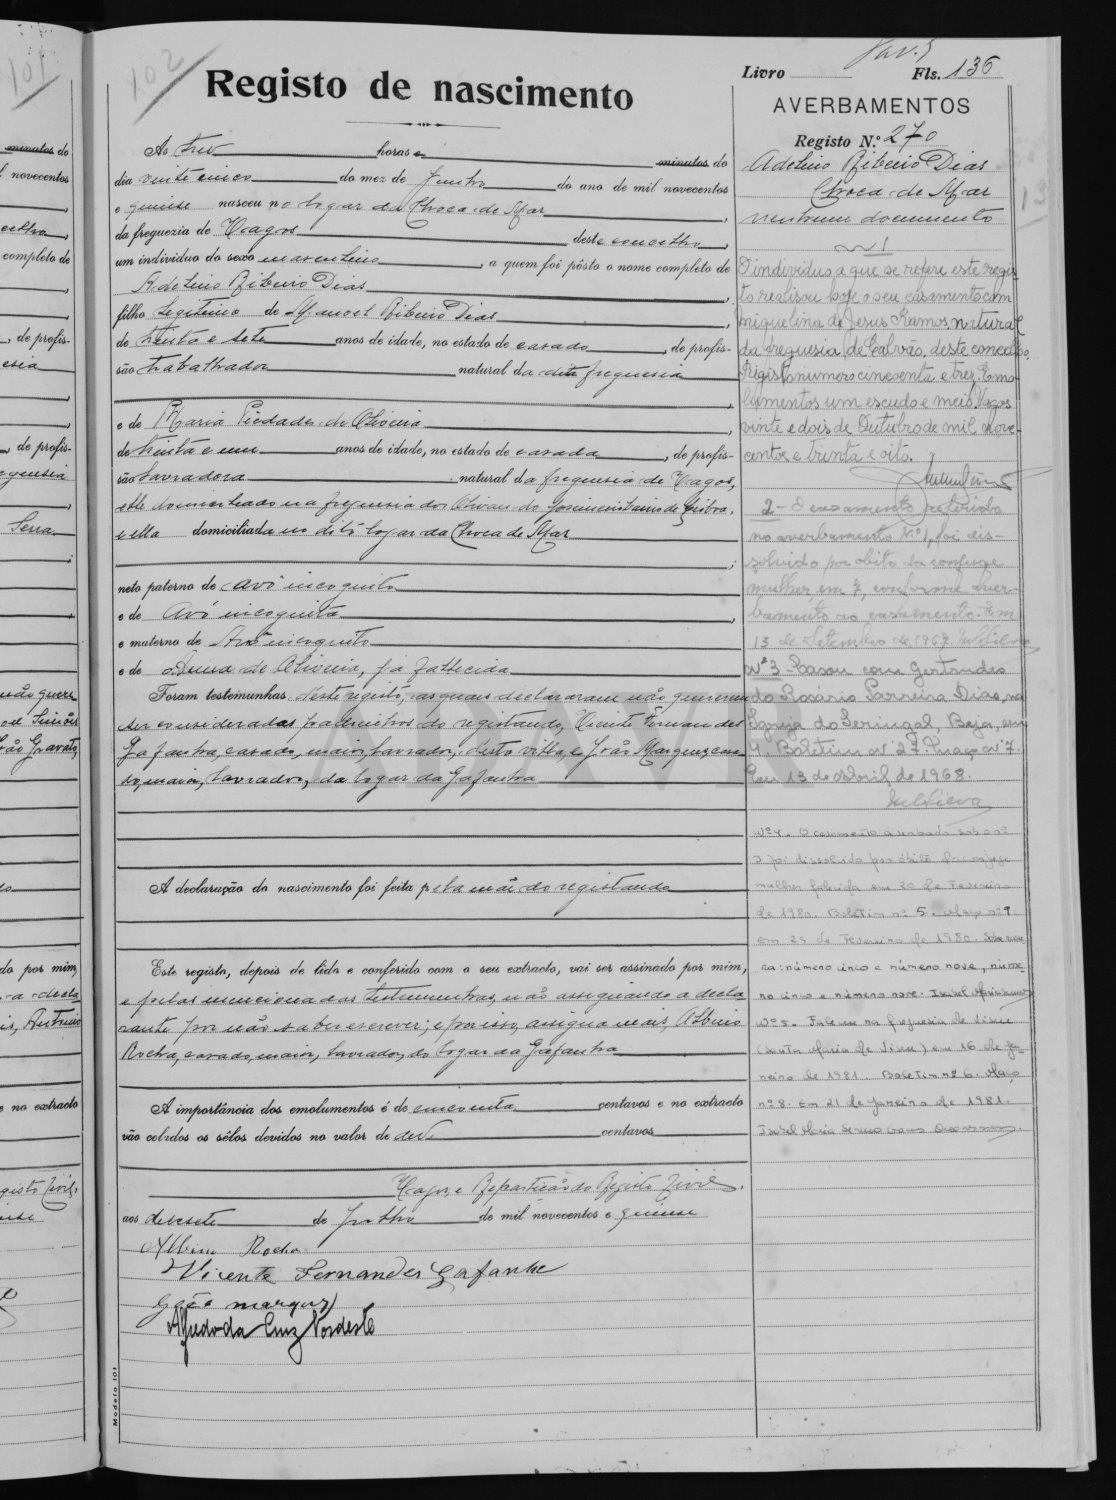 102
Registo de nascimento
Às tres horas e minutos do
dia vinte cinco do mez de Junho do ano de mil novecentos
e quinse nasceu no logar da Choca do Mar,
da freguezia de Vagos deste concelho,
um individuo do sexo masculino, a quem foi pôsto o nome completo de
Adelino Ribeiro Dias,
filho legitimo de Manoel Ribeiro Dias,
de trinta e sete anos de idade, no estado de casado, de profis-
são trabalhador natural da dita freguesia
e de Maria Piedade de Oliveira,
de trinta e um anos de idade, no estado de casada, de profis-
são lavradora natural da freguesia de Vagos,
elle domiciliado na freguesia dos Olivais do Lisboa,
e ella domiciliada no dito logar da Choca do Mar
neto paterno de avô incognito
e de Avó incognita,
e materno de Avô incognito
e de Anna de Oliveira, já fallecida
Foram testemunhas déste registo, as quais declararam não quererem
ser consideradas padrinhos do registando, Vicente Fernandes
Gafanha, casado, maior, lavrador, desta villa, e João Marques, casa-
do, maior, lavrador, do logar da Gafanha
A declaração do nascimento foi feita pela mãe do registando
Este registo, depois de lido e conferido com o seu extracto, vai ser assinado por mim,
e pelas mencionadas testemunhas, não assignando a decla
rante por não saber escrever; e por isso, assigna mais, Albino
Rocha, casado, maior, lavrador, do logar da Gafanha
A importância dos emolumentos é de cincoenta centavos e no extracto
vão colados os sêlos devidos no valor de dez centavos
Vagos, e Repartição do Registo Civil,
aos desesete de Julho de mil novecentos e quinse
Albino Rocha
Vicente Fernandes Gafanha
João marques
Alfredo da Cruz Nordeste
Modelo 101
Livro Fls. 136
AVERBAMENTOS
Registo N.º 270
Adelino Ribeiro Dias
Choca do Mar
nenhum documento
1
O individuo a que se refere este regis-
to realisou hoje o seu casamento com
Miguelina de Jesus Ramos, natural
da freguesia de Calvão, deste concelho.
Registo numero cincoenta e trez. Emo-
lumentos um escudo e meio. Vagos
vinte e dois de Outubro de mil nove-
centos e trinta e oito.
2 - O casamento referido
no averbamento Nº 1, foi dis-
solvido por obito da conjuge
mulher em 7, conforme aver-
bamento ao casamento. Em
13 de Setembro de 1967.
Nº 3 - Casou com Gertrudes
do Rosário Parreira Dias, na
Igreja do Beringel, Beja, em
Boletim nº 27. Maço nº 7.
Em 13 de Abril de 1968.
Nº 4. O casamento averbado sob o nº
3 foi dissolvido por óbito da conjuge
mulher falecida em 20 de Fevereiro
de 1980. Boletim nº 5. Maço nº 9
em 29 de Fevereiro de 1980.
ra: número cinco e número nove, núme-
ro cinco e número nove. Isabel
Nº 5. Faleceu na freguesia de Viseu
(Santa Maria de Viseu) em 16 de Ja-
neiro de 1981. Boletim nº 6. Maço
nº 8. Em 21 de Janeiro de 1981.
Isabel Maria